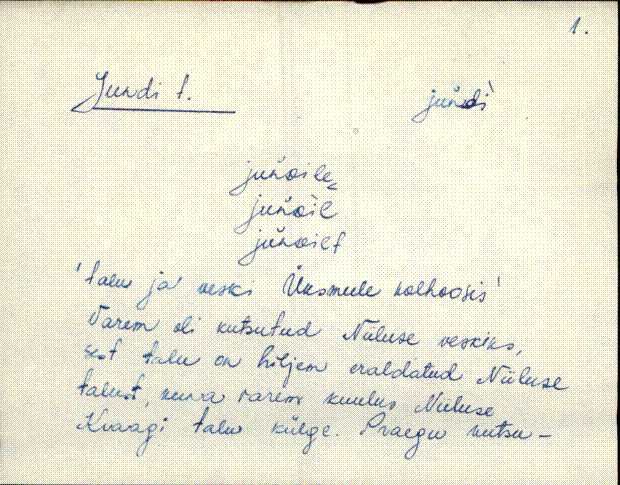 1.
Jundi t.
jundi
junDile
junDil
junDilt
'talu ja veski Üksmeele kolhoosis'
Varem oli kutsutud Niiluse veskiks,
sest talu on hiljem eraldatud Niiluse
talust, kuna varem kuulus Niiluse
Kraagi talu külge. Praegu kutsu-